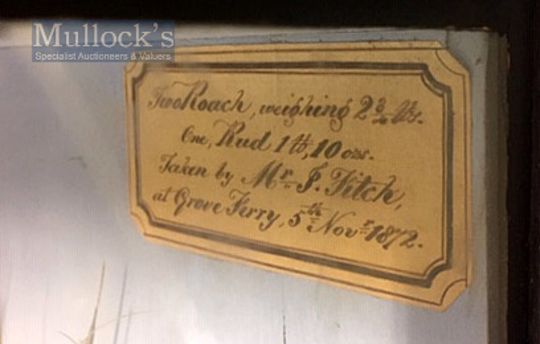 Mullock's
Specialist Auctioneers & Valuers
Two Roach, weighing 2¾ lbs.
One, Rud 1 lb, 10 ozs.
Taken by Mr J. Fitch,
at Grove Ferry, 5th Novr 1872.